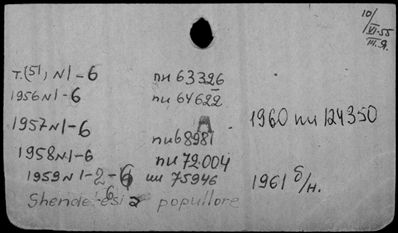 10/VI-55
III.Я.
т.(51) N1-6 пи 63326
1956 N1-6 пи 64622
1957 N1-6 пи68981 1960 пи 124350
1958 N1-6 пи 72.004
1959 N1-2-6 пи 75946 1961 б/н.
Shendetesia popullore